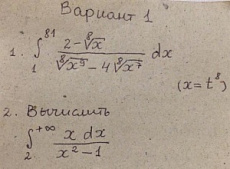 Вариант 1
1. ∫₁⁸¹ (2-⁸√x)/(⁸√x⁹-4⁸√x⁷) dx
(x=t⁸)
2. Вычислить
∫₂⁺∞ (x dx)/(x²-1)